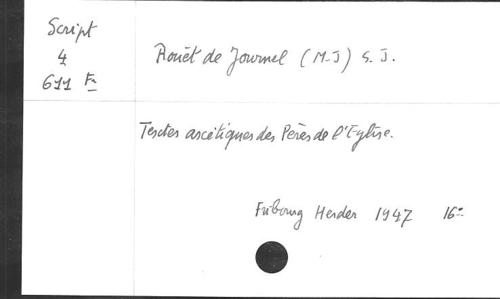 Script
4
611 Fr
Rouët de Journel (M-J) S.J.
Textes ascétiques des Pères de l'Eglise.
Fribourg Herder 1947 16°